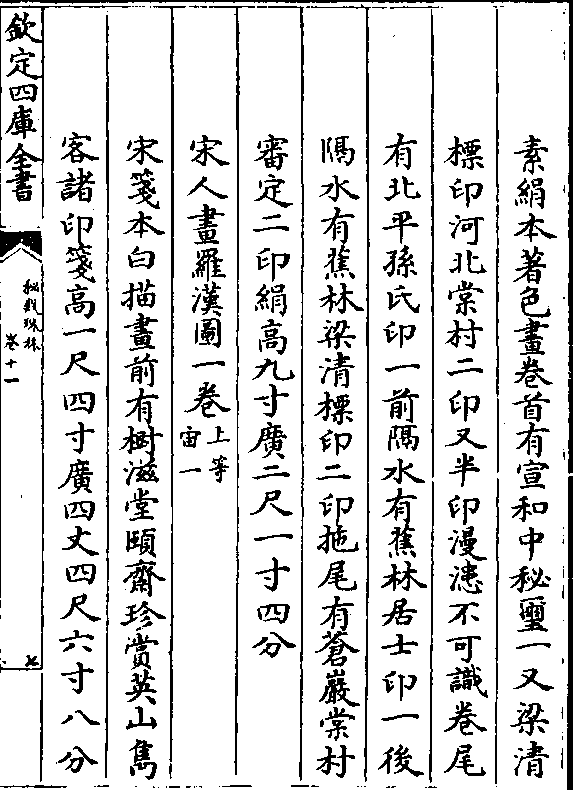 素絹本著色畫卷首有宣和中秘璽一又梁清
標印河北棠村二印又半印漫漶不可識卷尾
有北平孫氏印一前隔水有蕉林居士印一後
隔水有蕉林梁清標印二印拖尾有蒼巖棠村
審定二印絹高九寸廣二尺一寸四分
宋人畫羅漢圖一卷上等宙一
宋箋本白描畫前有樹滋堂頤齋珍賞英山雋
客諸印箋高一尺四寸廣四丈四尺六寸八分
欽定四庫全書
秘殿珠林
卷十一
七